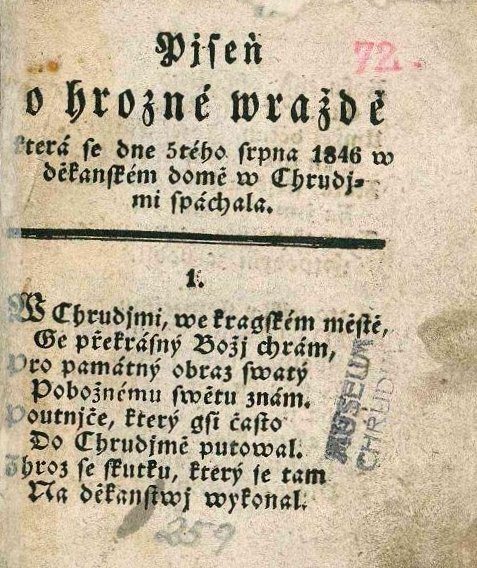 Pjseň
72.
o hrozné wraždě
která se dne 5tého srpna 1846 w
děkanském domě w Chrudj-
mi spáchala.
1.
W Chrudjmi, we kragském městě,
Ge překrásný Božj chrám,
Pro památný obraz swatý
Pobožnému swětu znám.
Poutnjče, který gsi často
Do Chrudjmě putowal.
Zhroz se skutku, který se tam
Na děkanstwj wykonal.
MUSEUM
CHRUDIM
259